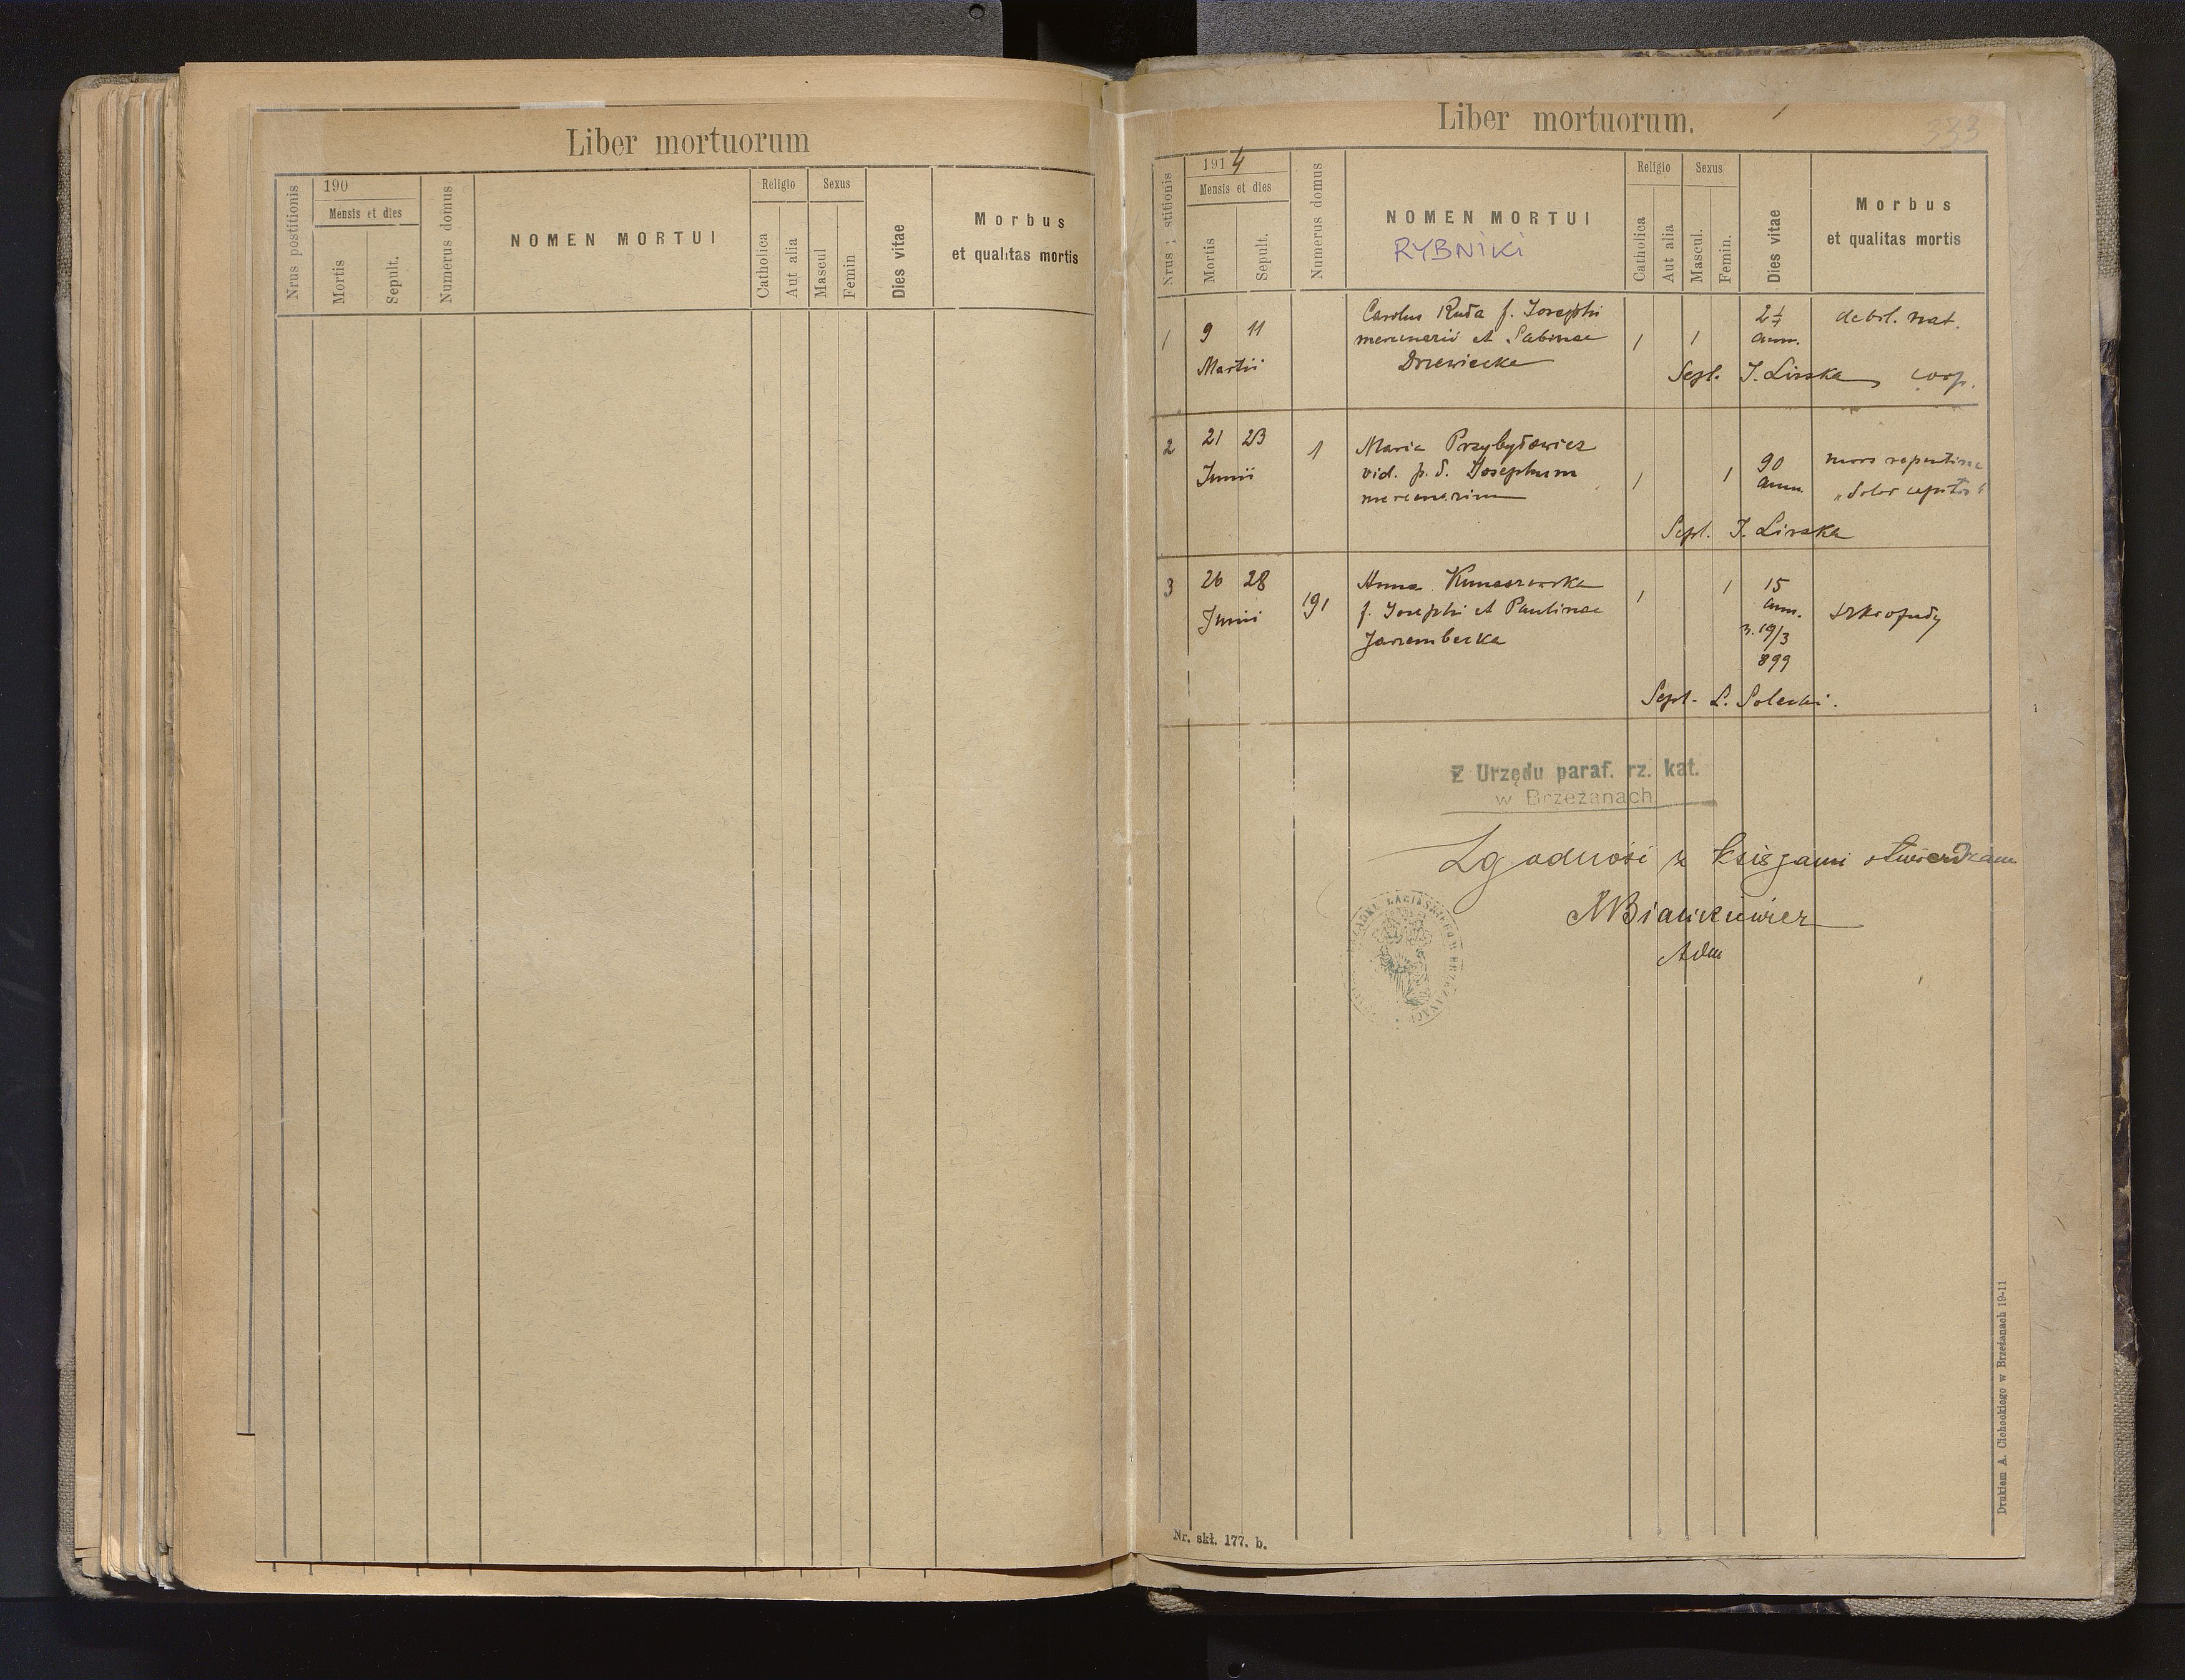 Liber mortuorum
Nrus postitionis
190
Mensis et dies
Mortis
Sepult.
Numerus domus
NOMEN MORTUI
Religio
Catholica
Aut alia
Sexus
Mascul
Femin
Dies vitae
Morbus
et qualitas mortis
Liber mortuorum.
333
1914
Mensis et dies
Mortis
Sepult.
Numerus domus
NOMEN MORTUI
RYBNIKI
Religio
Catholica
Aut alia
Sexus
Mascul.
Femin.
Dies vitae
Morbus
et qualitas mortis
1
9 11
Martii
Carolus Ruda f. Josephi
mercenarii et Sabinae
Drzewiecka
1
1
ann.
debil. nat.
Sepl. J. Liszka coop.
2
21 23
Junii
1
Maria Przybyłowicz
vid. p. d. Josephum
mercenarium
1
1
90
ann.
mors repentina
"dolor capitis"
Sepl. J. Liszka
3
26 28
Junii
191
Anna
f. Josephi et Paulinae
Jarzembecka
1
1
15
ann.
19/3
899
Sepl. L. Solecki.
Z Urzędu paraf. rz. kat.
w Brzeżanach
Zgodność z księgami stwierdzam
Adm
Nr. skł. 177. b.
Drukiem A. Cichockiego w Brzeżanach 19-11